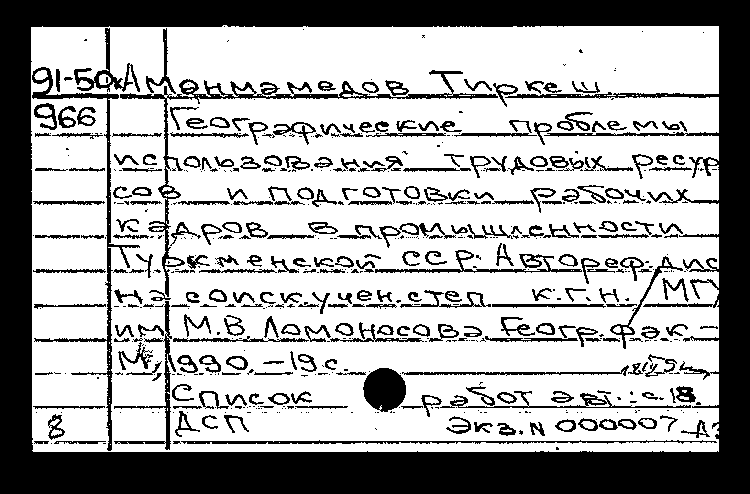 91-50к Аманмамедов Тиркеш.
966 Географические проблемы
использования трудовых ресур
сов и подготовки рабочих
кадров в промышленности
Туркменской ССР: Автореф. дис
на соиск. учен. степ к.г.н. / МГУ
им М.В. Ломоносова. Геогр. фак. –
М., 1990. – 19 с.
Список работ авт.: с. 18.
8 ДСП Экз. N 000007